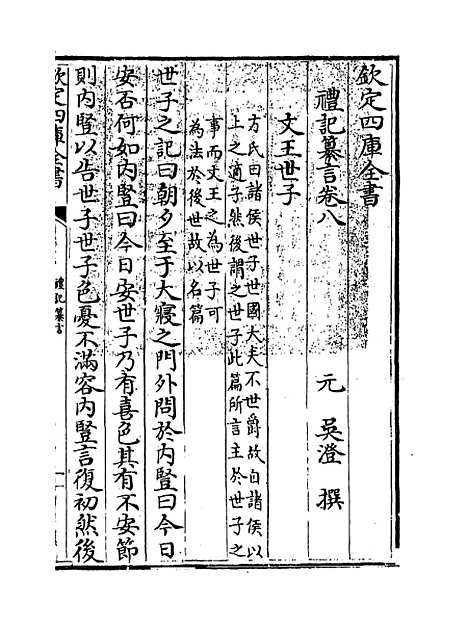 欽定四庫全書
禮記纂言卷八
元 吳澄 撰
文王世子
方氏曰諸侯世子世國大夫不世爵故自諸侯以
上之適子然後謂之世子此篇所言主於世子之
事而文王之為世子可
為法於後世故以名篇
世子之記曰朝夕至于大寢之門外問於内豎曰今日
安否何如内豎曰今日安世子乃有喜色其有不安節
則内豎以告世子世子色憂不滿容内豎言復初然後
欽定四庫全書
禮記纂言
一